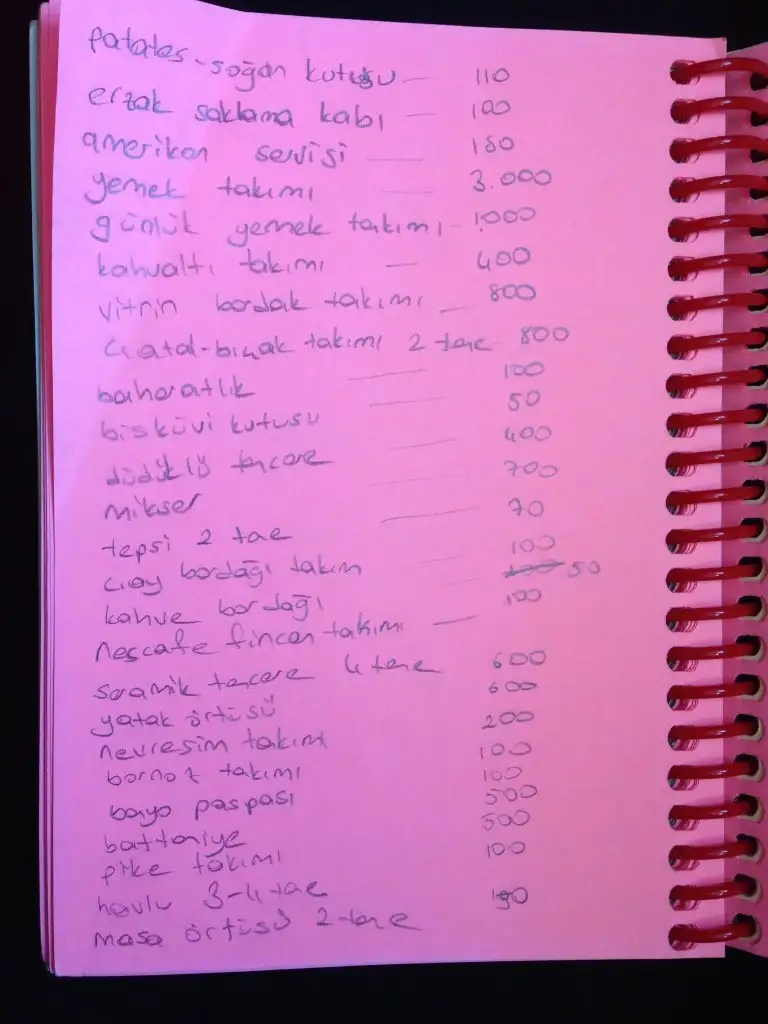 patates-soğan kutusu — 110
erzak saklama kabı — 100
amerikan servisi — 150
yemek takımı — 3.000
günlük yemek takımı - 1000
kahvaltı takımı — 400
vitrin bardak takımı — 800
çatal-bıçak takımı 2 tane 800
baharatlık — 100
bisküvi kutusu — 50
düdüklü tencere — 400
mikser — 700
tepsi 2 tae — 70
çay bardağı takım — 100
kahve bardağı — 50
nescafe fincan takımı — 100
seramik tencere 4 tene 600
yatak örtüsü 600
nevresim takımı 200
bornoz takımı 100
banyo paspası 100
battaniye 500
pike takımı 500
havlu 3-4 tae 100
masa örtüsü 2 tane